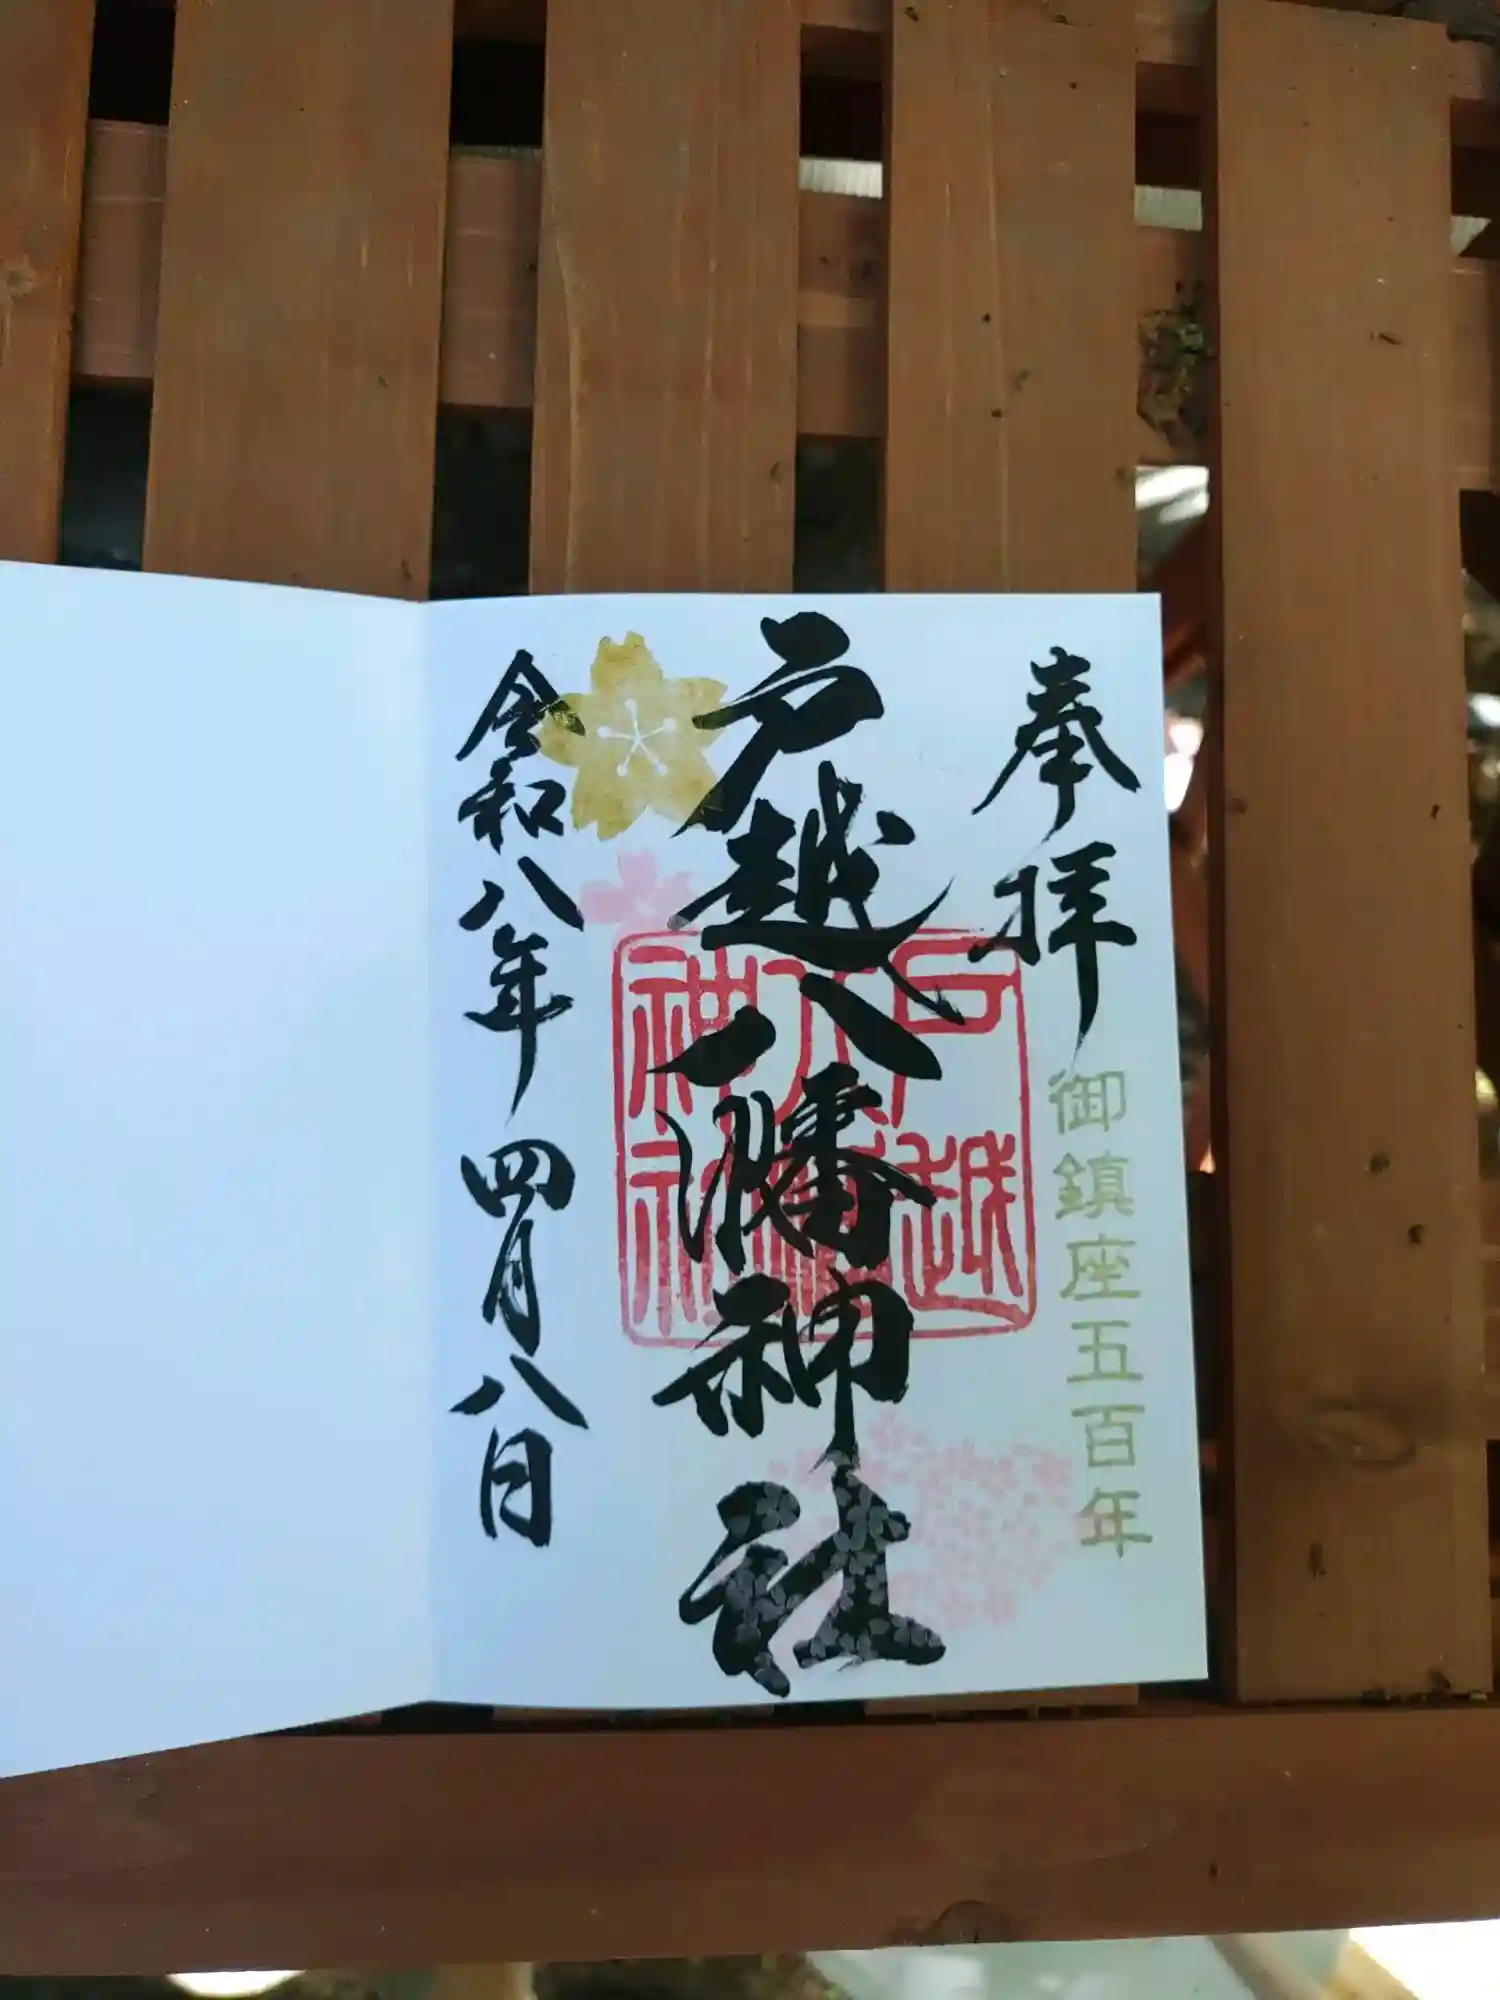 奉拝
御鎮座五百年
戸越八幡神社
戸越
八幡
神社
令和八年四月八日